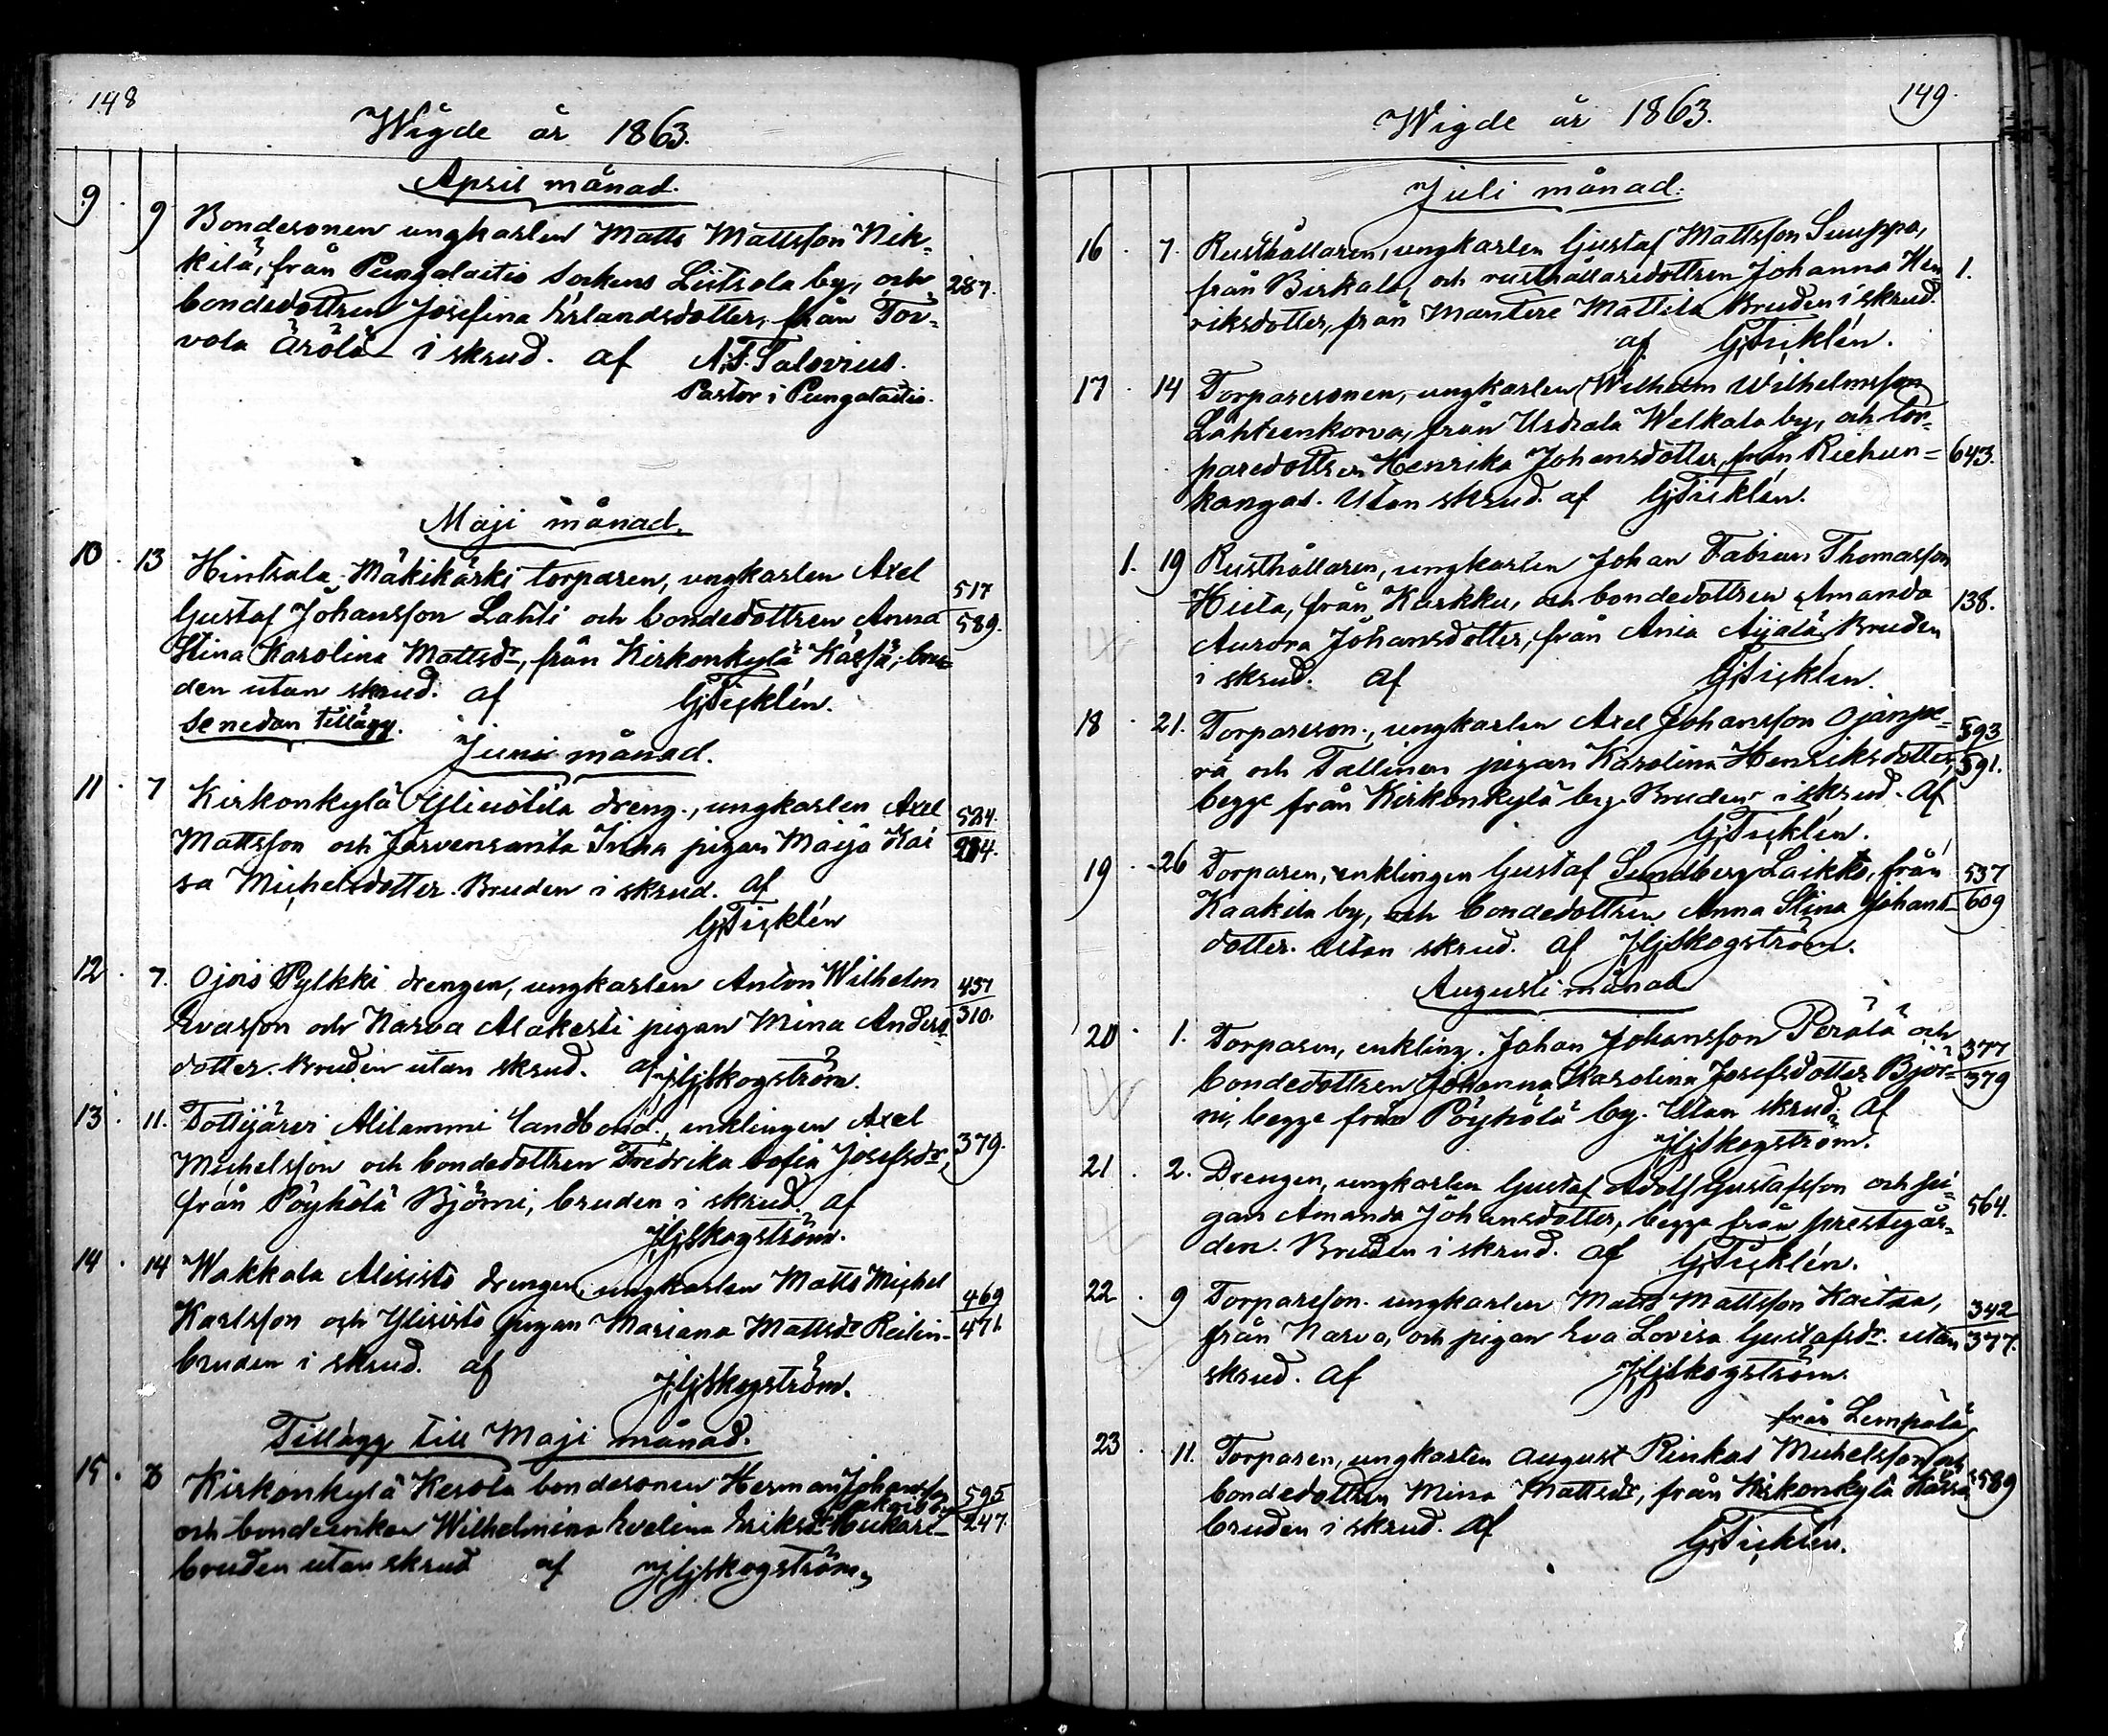 148
Wigde år 1863.
April månad.
9 9 Bondesonen ungkarlen Matts Mattsson Nik-
kilä, från Pungalaitio sockens Liitsola by, och 287.
bondedottren Josefina Erlandsdotter, från Tor-
vola Ärölä i skrud. af A.F. Salovius.
Pastor i Pungalaitio.
Maji månad.
10 13 Hintsala Mäkikärki torparen, ungkarlen Axel 517
Gustaf Johansson Lahti och bondedottren Anna 589.
Stina Karolina Mattsdr, från Kirkonkylä Kässä; bru-
den utan skrud. af G Ticklén.
Se nedan tillägg.
Juni månad.
11 7 Kirkonkylä Yliuotila dreng., ungkarlen Axel 524.
Mattsson och Järvensanta Inha pigan Maija Kai
sa Michelsdotter. Bruden i skrud. af
G Ticklén
12 7. Ojois Pylkki drengen, ungkarlen Anton Wilhelm 437
Evasson och Narva Alakesti pigan Mina Anders 310.
dotter. Bruden utan skrud. af J G Skogström.
13 11. Tottijärvi Alilammi landbond., enklingen Axel
Michelsson och bondedottren Fredrika Sofia Josefsdr, 379.
från Pöyhölä Björni, bruden i skrud. af
J G Skogström.
14 14 Wakkala Alisisto drengen, ungkarlen Matts Michel 469
Karlsson och Ylisisto pigan Mariana Mattsdr Reilin- 471.
bruden i skrud. af
J G Skogström.
Tillägg till Maji månad.
15 8 Kirkonkylä Kesola bondesonen Herman Johansson 595
och bondeenkan Wilhelmina Evelina Eriksdr 247.
bruden utan skrud af J G Skogström
149.
Wigde år 1863.
Juli månad.
16 7. Rusthållaren, ungkarlen Gustaf Mattsson Suuppa,
från Birkala, och rusthållaredottren Johanna Hen 1.
riksdotter, från Mantere Mattila Bruden i skrud.
af G Ticklén.
17 14 Torparesonen, ungkarlen Wilhelm Wilhelmsson
Lähteenkorva, från Urdiala Welkala by, och tor-
paredottren Henrika Johansdotter, från Riehun- 643.
kangas. Utan skrud. af G Ticklén.
1. 19 Rusthållaren, ungkarlen Johan Fabian Thomasson
Hieta, från Karkku, och bondedottren Amanda 138.
Aurora Johansdotter, från Ania Äijälä Bruden
i skrud. af G Ticklén.
18 21. Torparson., ungkarlen Axel Johansson Ojanpe- 593
rä och Tallinen pigan Karolina Henriksdotter, 591.
begge från Kirkonkylä by. Bruden i skrud. Af
G Ticklén.
19 26 Torparen, enklingen Gustaf Sundberg Laikko, från 537
Kaakila by, och bondedottren Anna Stina Johans- 609
dotter. utan skrud. af J G Skogström.
Augusti månad
20 1. Torparen, enkling. Johan Johansson Perälä och 377
bondedottren Johanna Karolina Josefsdotter Björ- 379
ni, begge från Pöyhölä by. Utan skrud. Af
J G Skogström.
21 2. Drengen, ungkarlen Gustaf Adolf Gustafsson och pi-
gan Amanda Johansdotter, begge från prestegår- 564.
den. Bruden i skrud. af G Ticklén.
22 9 Torparson. ungkarlen Matts Mattsson Kaitaa, 342
från Narva, och pigan Eva Lovisa Gustafsdr. utan 377.
skrud. af J G Skogström.
från Lempälä
23 11. Torparen, ungkarlen August Rinkas Michelsson och
bondedottren Mina Mattsdr, från Kirkonkylä Kässä 589
bruden i skrud. Af
G Ticklén.